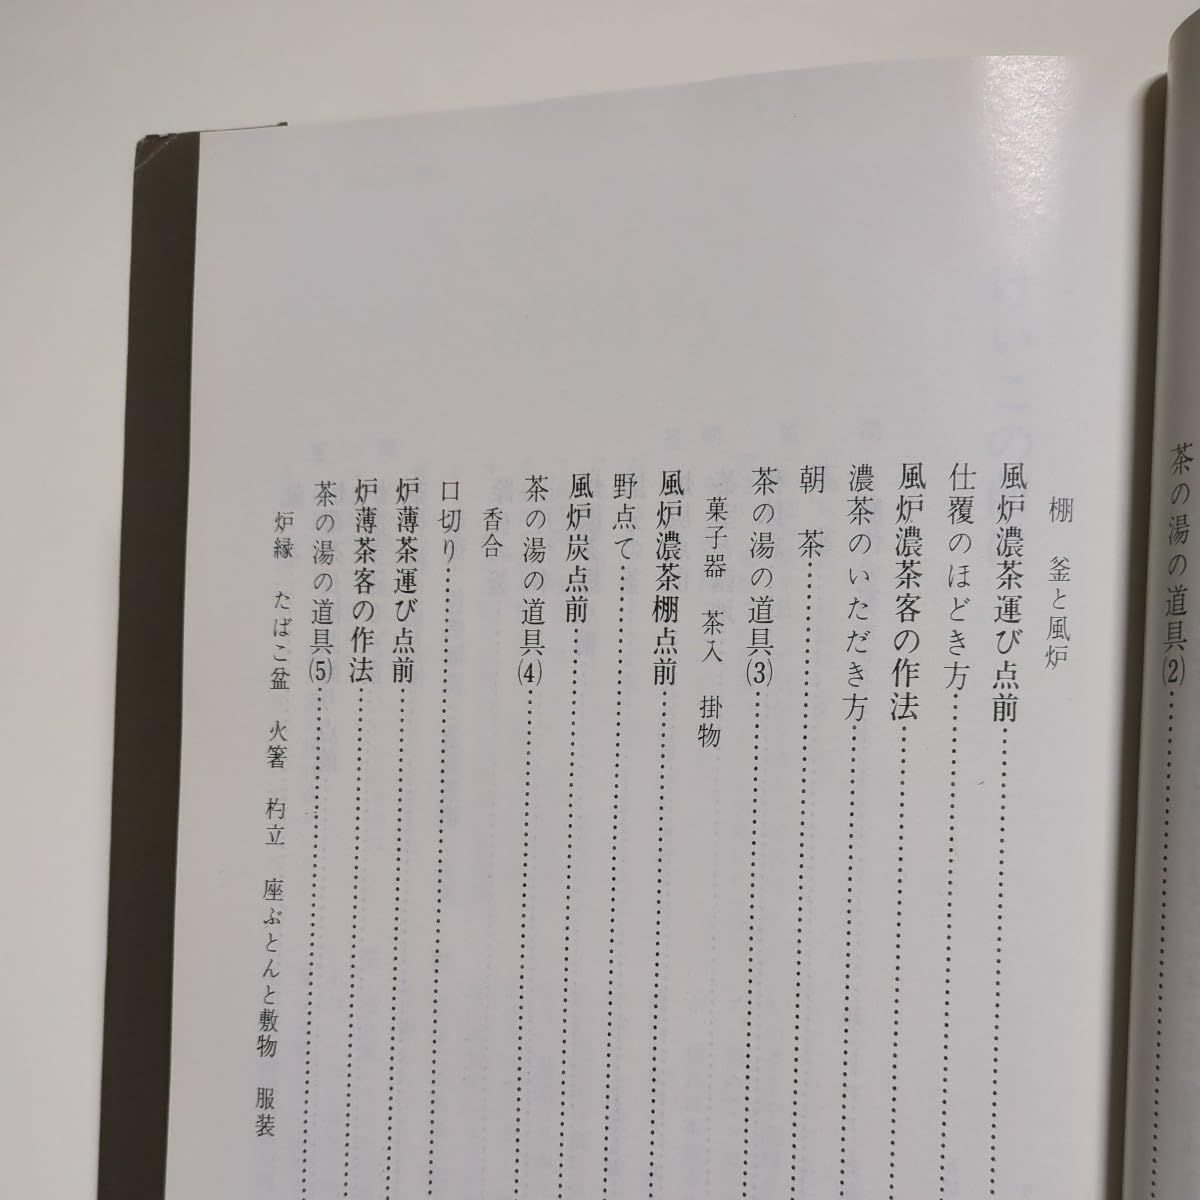 茶の湯の道具(2)……
棚　釜と風炉
風炉濃茶運び点前……
仕覆のほどき方……
風炉濃茶客の作法……
濃茶のいただき方……
朝　茶……
茶の湯の道具(3)……
菓子器　茶入　掛物
風炉濃茶棚点前……
野点て……
風炉炭点前……
茶の湯の道具(4)……
香合
口切り……
炉薄茶運び点前……
炉薄茶客の作法……
茶の湯の道具(5)……
炉縁　たばこ盆　火箸　杓立　座ぶとんと敷物　服装